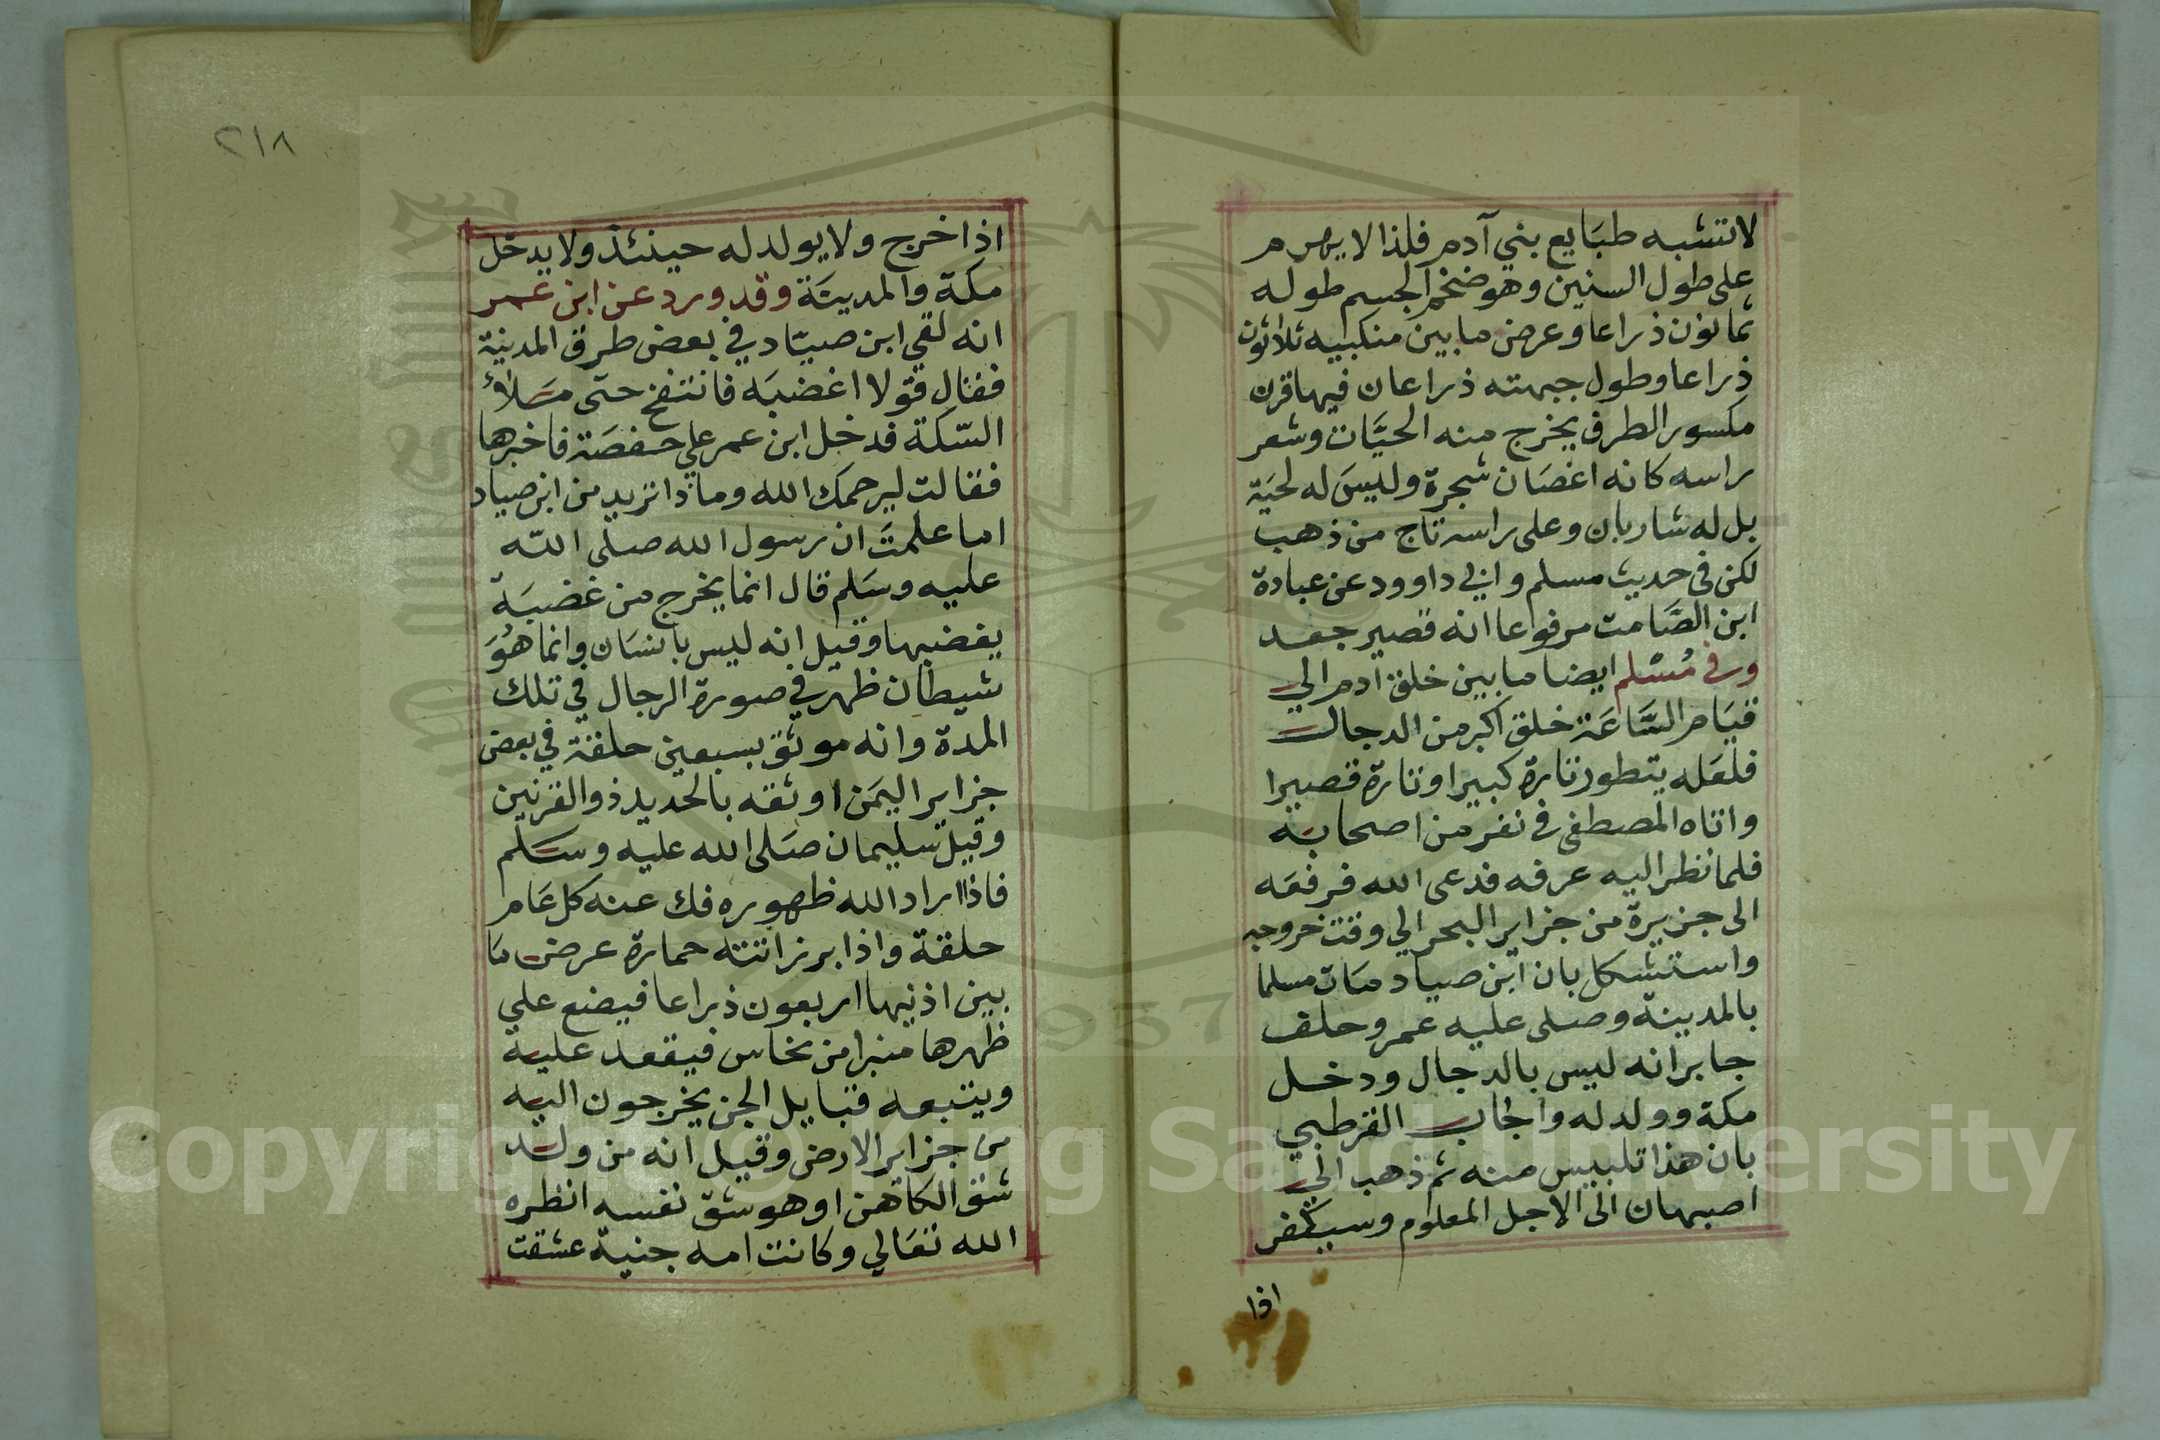 لاتشبه طبايع بني آدم فلذا لا يهرم
على طول السنين وهو ضخم الجسم طوله
ثمانون ذراعا وعرض ما بين منكبيه ثلاثون
ذراعا وطول جبهته ذراعان فيها قرن
مكسور الطرف يخرج منه الحيَّات وشعر
راسه كانه اغصَان شجرة وليسَ له لحيَة
بل له شاربان وعلى راسه تاج من ذهب
لكن في حديث مسلم وابي داوود عن عبادة
ابن الصَّامت مرفوعا انه قصير جعد
وفي مُسْلم ايضا ما بين خلق ادم الي
قيَام السَّاعَة خلق اكبر من الدجال
فلعَله يتطور تارة كبيرا وتارة قصيرا
واتاه المصطفى في نفر من اصحابه
فلما نظر اليه عرفه فدعى الله فرفعَه
الى جزيرة من جزاير البحر الي وقت خروجه
واستشكل بان ابن صياد مات مسلما
بالمدينة وصلى عليه عمر وحلف
جابر انه ليس بالدجال ودخل
مكة وولد له واجاب القرطبي
بان هذا تلبيس منه ثم ذهب الي
اصبهان الى الاجل المعلوم وسيكفر
اذا
٢١٨
اذا خرج ولا يولد له حينئذ ولا يدخل
مكة والمدينَة وقد ورد عن ابن عمر
انه لقي ابن صيّاد في بعض طرق المدينة
فقال قولا اغضبَه فانتفخ حتى مَلأ
السّكة فدخل ابن عمر علي حفصَة فاخبرها
فقالت ليرحمك الله وماذا تريد من ابن صياد
اما علمتَ ان رسول الله صلى اللّه
عليه وسَلم قال انما يخرج من غضبَة
يغضبها وقيل انه ليس بانسَان وانما هُوَ
شيطان ظهر في صورة الرجال في تلك
المدة وانه موثق بسبعين حلقة في بعض
جزاير اليمَن اوثقه بالحديد ذو القرنين
وقيل سليمان صَلى الله عليه وسَلم
فاذا اراد الله ظهوره فك عنه كل عَام
حلقة واذا برز اتته حمارة عرض مَا
بين اذنيها اربعون ذراعا فيضع علي
ظهرها منبرا من نحاس فيقعد عليه
ويتبعه قبايل الجن يخرجون اليه
من جزاير الارض وقيل انه من ولد
شق الكاهن او هو شق نفسه انظره
الله تعَالي وكانت امه جنية عشقت
Copyright © King Saud University
1957